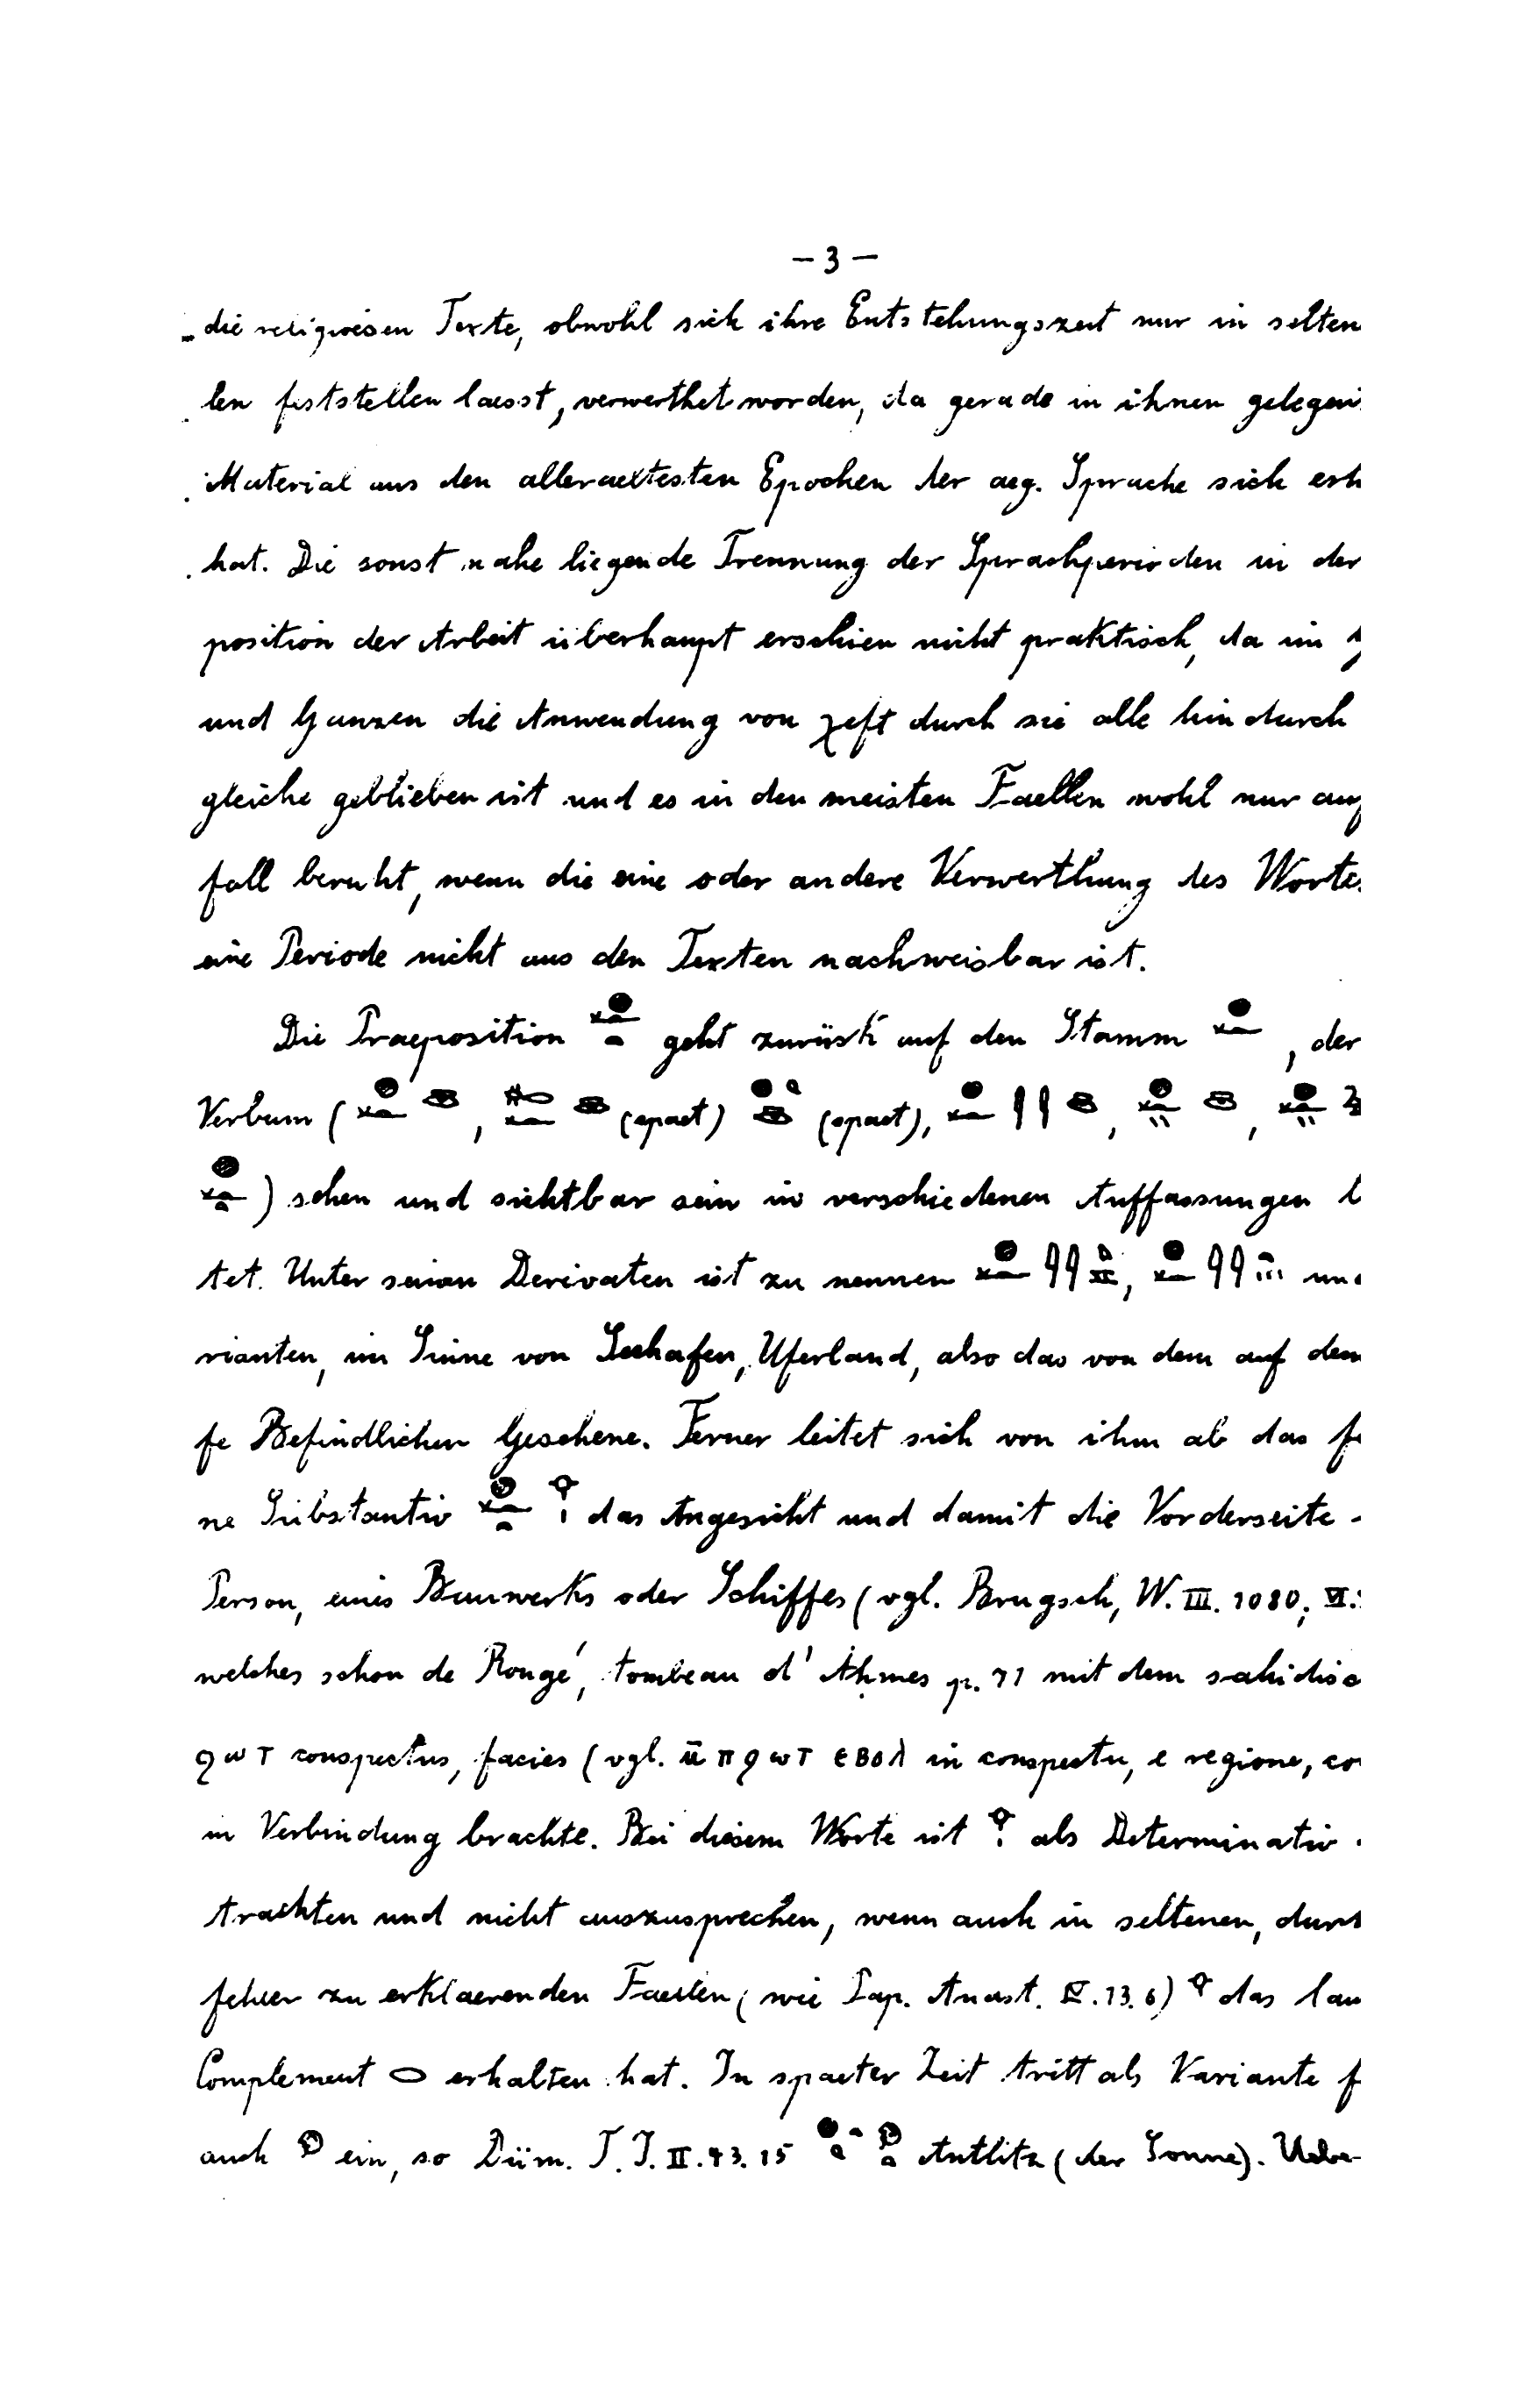 – 3 –
die religioesen Texte, obwohl sich ihre Entstehungszeit nur in selten
len feststellen laesst, verwerthet worden, da gerade in ihnen gelegen
Material aus den alleraeltesten Epochen der aeg. Sprache sich erh
hat. Die sonst nahe liegende Trennung der Sprachperioden in der
position der Arbeit überhaupt erschien nicht praktisch, da im
und Ganzen die Anwendung von χeft durch sie alle hindurch
gleiche geblieben ist und es in den meisten Faellen wohl nur auf
fall beruht, wenn die eine oder andere Verwerthung des Wortes
eine Periode nicht aus den Texten nachweisbar ist.
Die Praeposition 𓆑𓐍𓏏 geht zurück auf den Stamm 𓐍𓆑, der
Verbum ( , (spaet) (spaet), , ,
) sehen und sichtbar sein in verschiedenen Auffassungen
tet. Unter seinen Derivaten ist zu nennen , un
rianten, im Sinne von Seehafen, Uferland, also das von dem auf dem
fe Befindlichen Gesehene. Ferner leitet sich von ihm ab das fe
ne Substantiv das Angesicht und damit die Vorderseite
Person, eines Bauwerks oder Schiffes (vgl. Brugsch, W. III. 1080; VI.
welches schon de Rougé, tombeau d'Aḥmes p. 71 mit dem sahidisc
ϩωτ conspectus, facies (vgl. ⲙ̄ⲡϩωⲧ ⲉⲃⲟⲗ in conspectu, e regione, co
in Verbindung brachte. Bei diesem Worte ist 𓁷 als Determinativ
trachten und nicht auszusprechen, wenn auch in seltenen, durch
fehler zu erklaerenden Faellen (wie Pap. Anast. IV. 13. 6) 𓁷 das lau
Complement 𓂋 erhalten hat. In spaeter Zeit tritt als Variante f
auch 𓁶 ein, so Düm. T. I. II. 43. 15 Antlitz (der Sonne). Uebe-